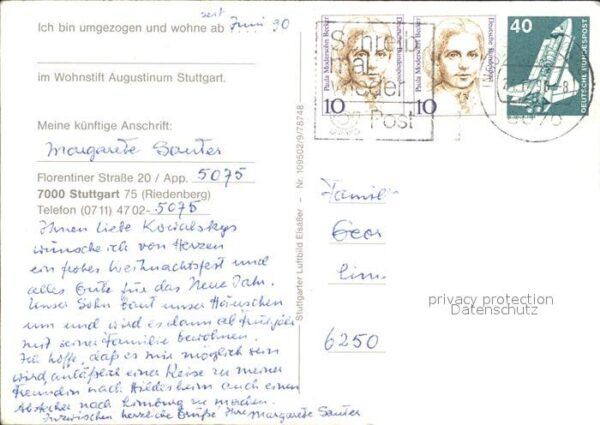 seit
Ich bin umgezogen und wohne ab Juni 90
im Wohnstift Augustinum Stuttgart.
Meine künftige Anschrift:
Margarete Sauter
Florentiner Straße 20 / App. 5075
7000 Stuttgart 75 (Riedenberg)
Telefon (0711) 4702-5075
Ihnen liebe Kowalskys
wünsche ich von Herzen
ein frohes Weihnachtsfest und
alles Gute für das Neue Jahr.
Unser Sohn baut unser Häuschen
um und wird es dann ab Frühjahr
mit seiner Familie bewohnen.
Ich hoffe, daß es mir möglich sein
wird, anläßlich einer Reise zu meiner
Freundin nach Hildesheim auch einen
Abstecher nach Limburg zu machen.
Inzwischen herzliche Grüße Ihre Margarete Sauter
Stuttgarter Luftbild Elsäßer – Nr. 109502/9/78748
Paula Modersohn-Becker
Deutsche Bundespost
10
Paula Modersohn-Becker
Deutsche Bundespost
10
40
DEUTSCHE BUNDESPOST
Schreib
mal
wieder
Post
Famili
Geor
Lim
6250
privacy protection
Datenschutz